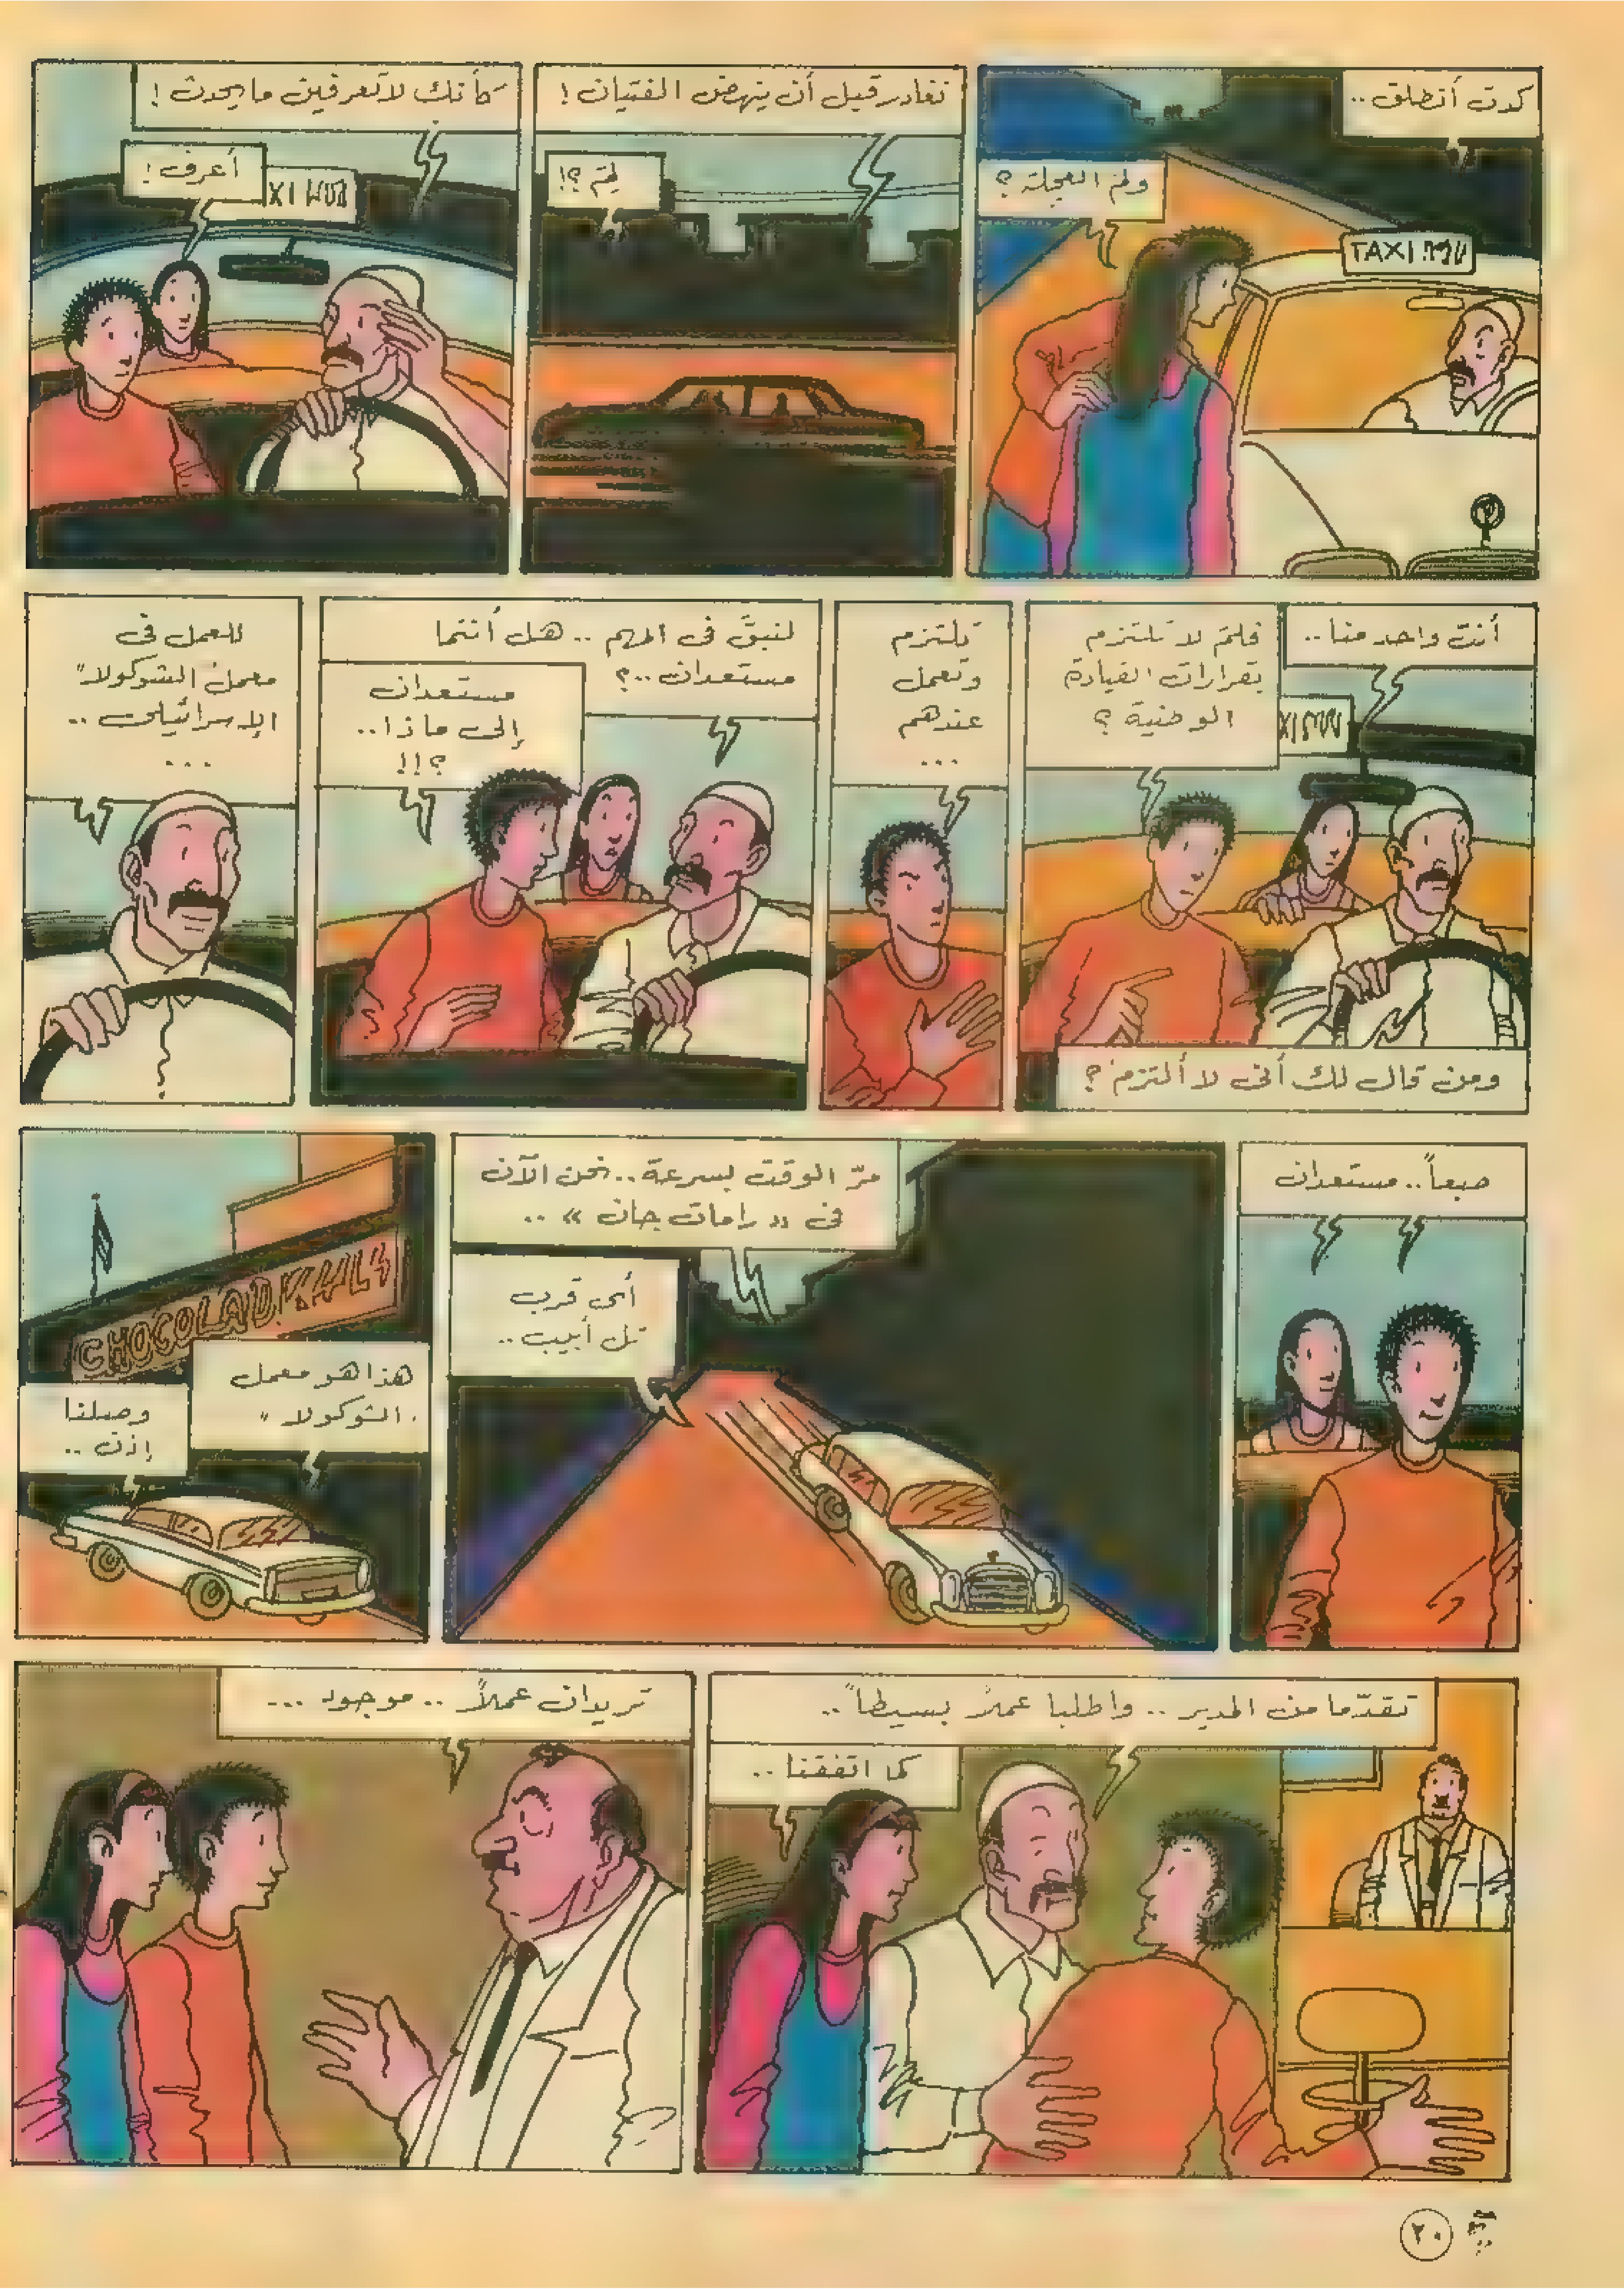 كدت أنطلق..
ولمَ العجلة؟
TAXI
نغادر قبل أن ينهض الفتيان!
لِمَ؟!
كأنك لا تعرفين ما يحدث!
أعرف!
أنت واحد منا..
فلمَ لا تلتزم
بقرارات القيادة
الوطنية؟
ومن قال لك أنى لا ألتزم؟
تلتزم
وتعمل
عندهم
...
لنبقَ فى المهم.. هل أنتما
مستعدان..؟
مستعدان
إلى ماذا..
؟!!
للعمل فى
معمل الشوكولا"
الإسرائيلى..
...
طبعاً.. مستعدان
مرّ الوقت بسرعة.. نحن الآن
فى «رامات جان»..
أى قرب
تل أبيب..
CHOCOLAD
هذا هو معمل
الشوكولا"
وصلنا
إذن..
تقدّما من المدير.. واطلبا عملاً بسيطاً..
كما اتفقنا..
تريدان عملاً.. موجود...
٢٠